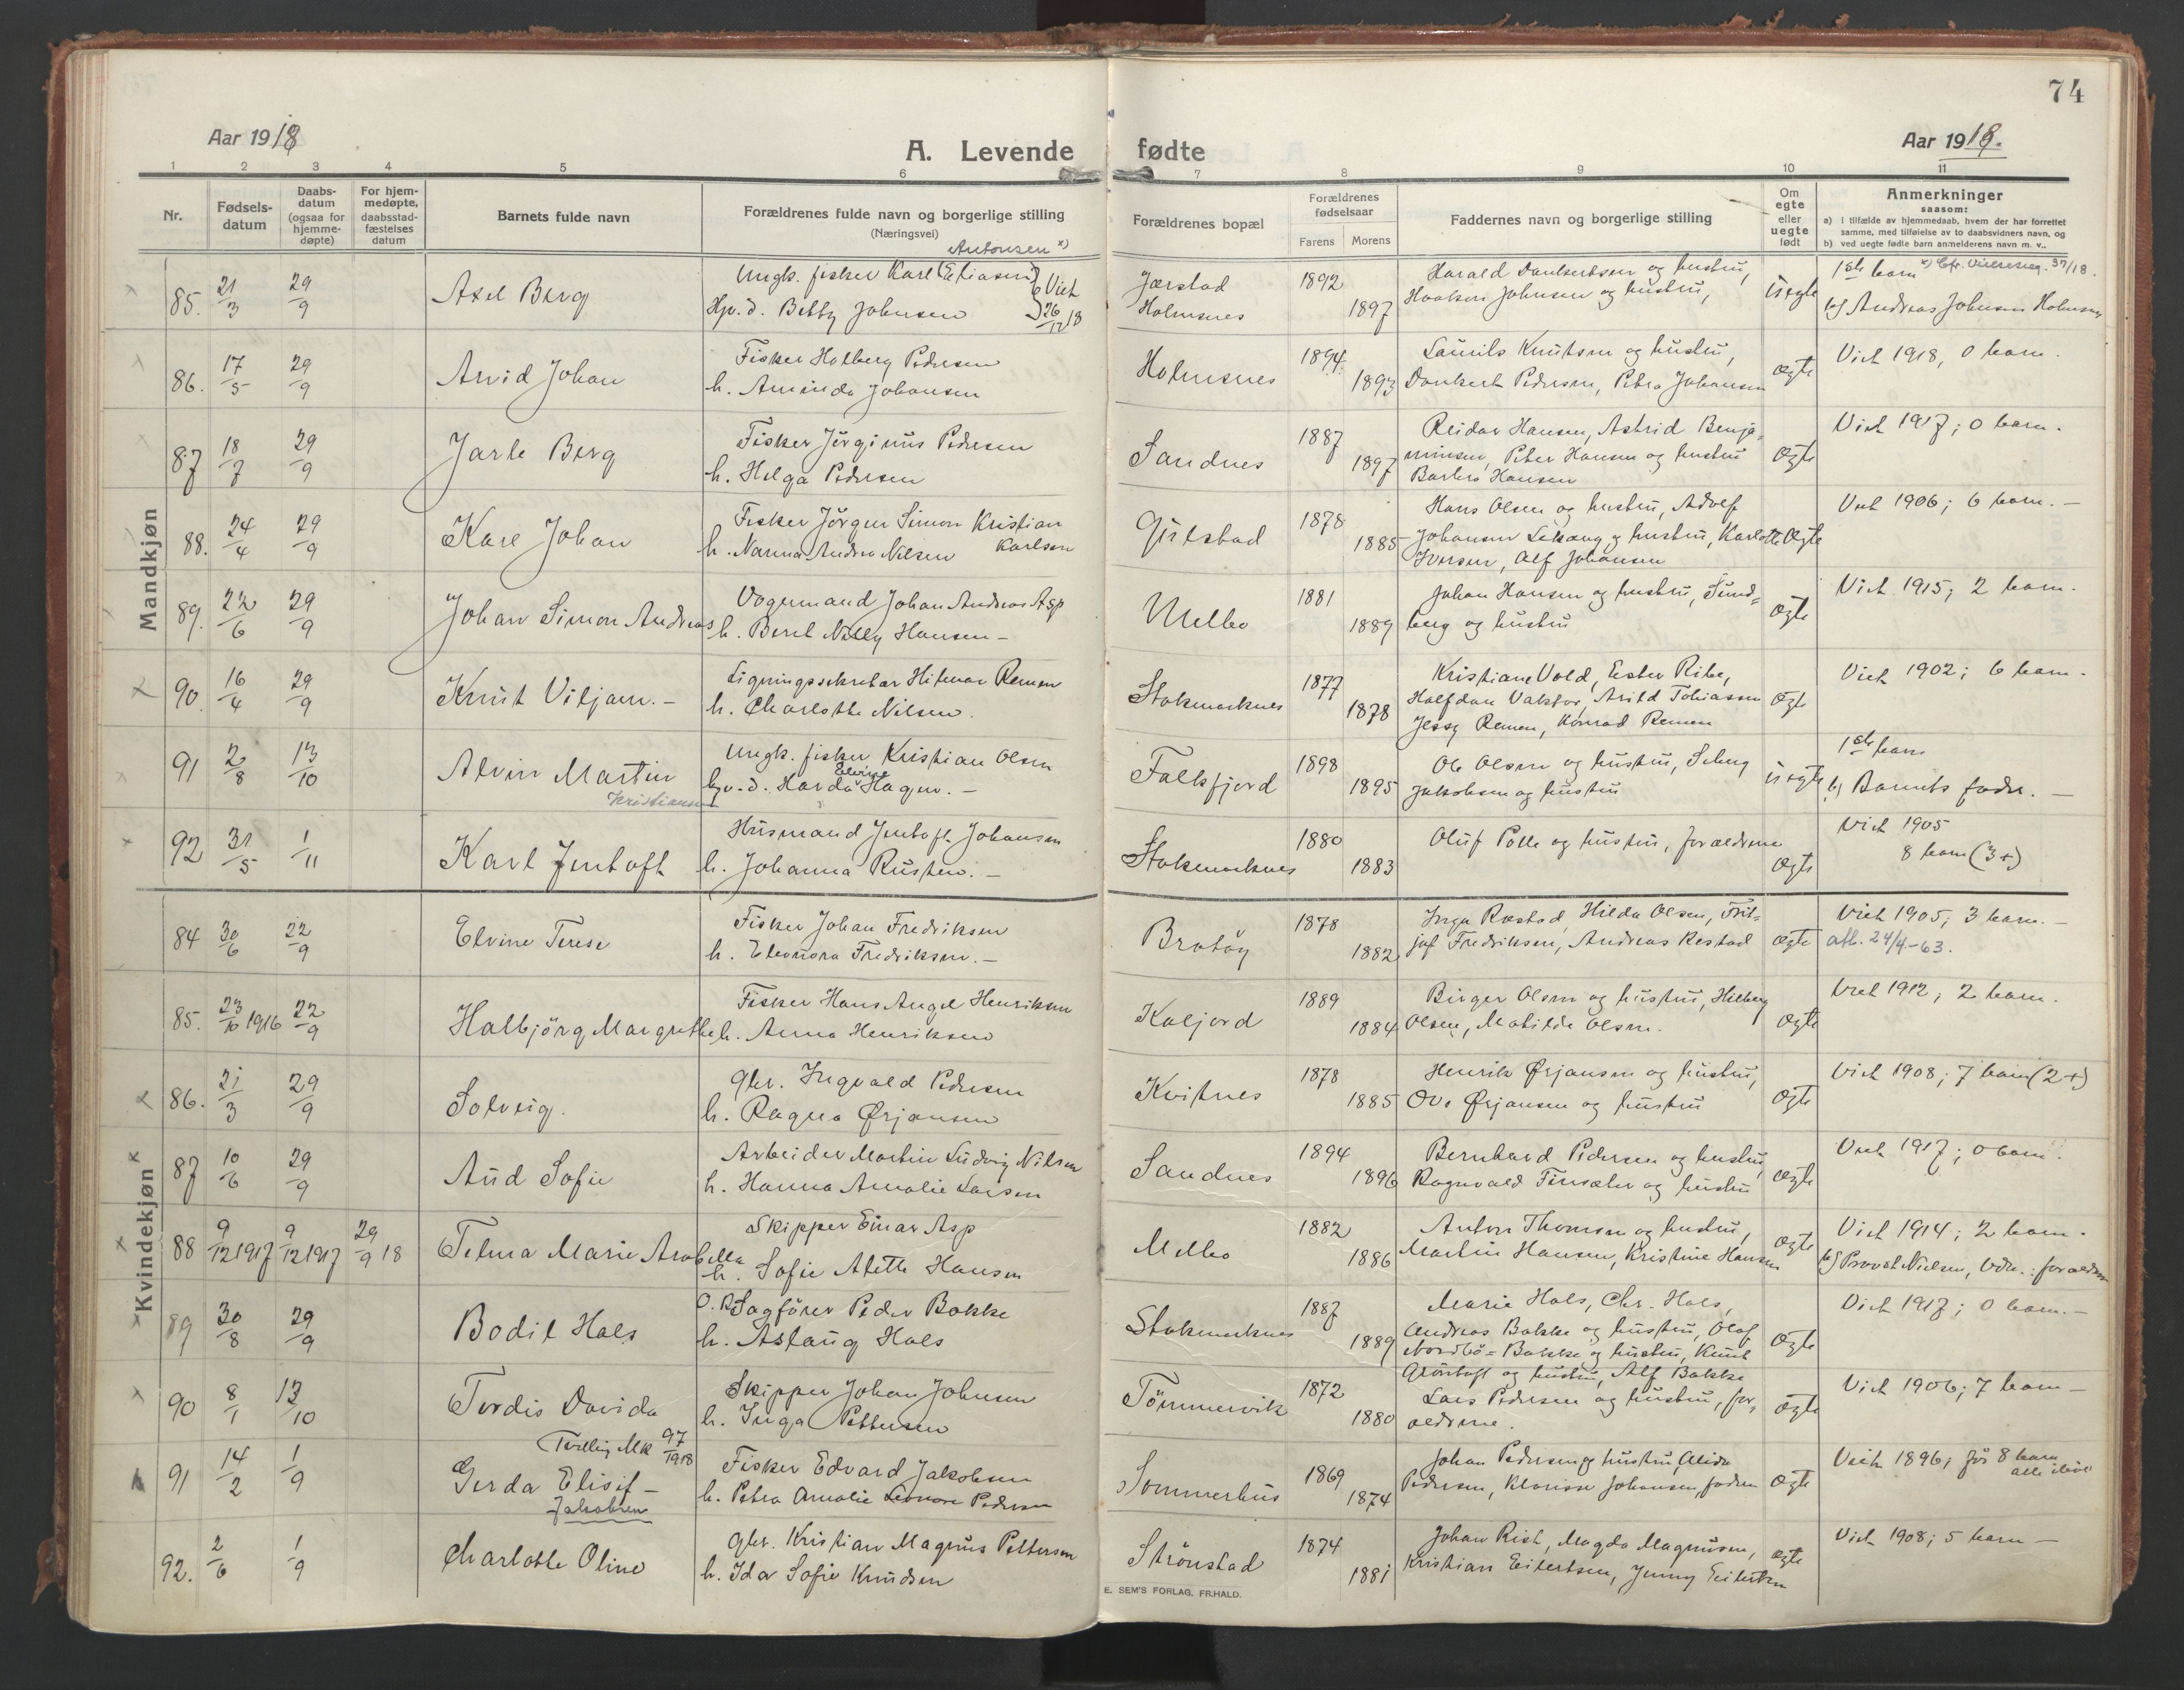 74
Aar 1918
A. Levende fødte
Aar 1918.
1 2 3 4 5 6 7 8 9 10 11
Nr.
Fødsels-
datum
Daabs-
datum
(ogsaa for
hjemme-
døpte)
For hjem-
medøpte,
daabsstad-
fæstelses
datum
Barnets fulde navn
Forældrenes fulde navn og borgerlige stilling
(Næringsvei)
Forældrenes bopæl
Forældrenes
fødselsaar
Farens Morens
Faddernes navn og borgerlige stilling
Om
egte
eller
uegte
født
Anmerkninger
saasom:
a) i tilfælde av hjemmedaab, hvem der har forrettet
samme, med tilføielse av to daabsvidners navn, og
b) ved uegte fødte barn anmelderens navn m. v..
Mandkjøn
Antonsen x)
85. 21/3 29/9 Axel Berg Ungk. fisker Karl (Eliasen) Viet Jærstad 1892 Harald Dankertsen og hustru, uegte 1ste barn x) Cfr. Vielsesreg. 37/18.
Hpv. d. Betty Johnsen 26/12 18 Holmsnes 1897 Haakon Johnsen og hustru, b) Andreas Johnsen Holmsnes
86. 17/5 29/9 Arvid Johan Fisker Holberg Pedersen Holmsnes 1894 Laurits Knutsen og hustru, ægte Viet 1918, 0 barn.
h. Aminda Johansen 1893 Dankert Pedersen, Petra Johansen
87 18/7 29/9 Jarle Berg Fisker Jørginus Pedersen Sandnes 1887 Reidar Hansen, Astrid Benja- ægte Viet 1917; 0 barn.
h. Helga Pedersen 1897 minsen, Peter Hansen og hustru
Barbro Hansen
88. 24/4 29/9 Kare Johan Fisker Jørgen Simon Kristian Karlsen Gulstad 1878 Hans Olsen og hustru, Adolf ægte Viet 1906; 6 barn. -
h. Nanna Andrea Nilsen 1885 Johansen Leknang og hustru, Karlotte
Iversen, Alf Johansen
89. 22/6 29/9 Johan Simon Andreas Vognmand Johan Andreas Asp Melbo 1881 Johan Hansen og hustru, Sund= ægte Viet 1915; 2 barn.
h. Beret Nelly Hansen - 1889 berg og hustru
90. 16/4 29/9 Knut Viljam. - Ligningssekretær Hilmar Remen Stokmarknes 1877 Kristiane Vold, Ester Ribe, ægte Viet 1902; 6 barn.
h. Charlotte Nilsen. 1878 Halfdan Vaktor, Arild Tobiassen
Jessy Remen, Konrad Remen
91 2/8 13/10 Alvin Martin Ungk. fisker Kristian Olsen Falkfjord 1898 Ole Olsen og hustru, Selmy uegte 1ste barn
Kristiansen hpv. d. Harda Elvine Hagen. - 1895 Jakobsen og hustru b) Barnets fader. -
92 31/5 1/11 Karl Jentoft Husmand Jentoft Johansen Stokmarknes 1880 Oluf Polle og hustru, forældrene ægte Viet 1905
h. Johanna Rusten. - 1883 8 barn (3+)
Kvindekjøn
84 30/6 22/9 Elvine Terese Fisker Johan Fredriksen Bratøy 1878 Inga Røstad, Hilda Olsen, Frit- ægte Viet 1905; 3 barn. -
h. Eleonora Fredriksen. - 1882 jof Fredriksen, Andreas Restad att. 24/4-63.
85. 23/10 1916 22/9 Halbjørg Margrethe Fisker Hans Angel Henriksen Kaljord 1889 Birger Olsen og hustru, Hilberg ægte Viet 1912; 2 barn.
h. Anna Henriksen 1884 Olsen, Matilde Olsen.
86. 21/3 29/9 Solveig. Gbr. Ingvald Pedersen Kvitnes 1878 Henrik Ørjansen og hustru, ægte Viet 1908; 7 barn (2+)
h. Ragna Ørjansen 1885 Ove Ørjansen og hustru
87 10/6 29/9 Aud Sofie Arbeider Martin Ludvig Nilsen Sandnes 1894 Bernhard Pedersen og hustru, ægte Viet 1917; 0 barn.
h. Hanna Amalie Larsen 1896 Ragnvald Finsæter og hustru
88 9/12 1917 9/12 1917 29/9 18 Telma Marie Arabella Skipper Einar Asp Melbo 1882 Anton Thomsen og hustru, ægte Viet 1914; 2 barn.
h. Sofie Alette Hansen 1886 Martin Hansen, Kristine Hansen b) Provst Nielsen, Vidn.: forældrene
89 30/8 29/9 Bodil Hals O. R. Sagfører Peder Bakke Stokmarknes 1887 Marie Hals, Chr. Hals, ægte Viet 1917; 0 barn. -
h. Aslaug Hals 1889 Andreas Bakke og hustru, Olaf
Nordbø= Bakke og hustru, Knut
Grøntoft og hustru, Alf Bakke
90 8/1 13/10 Tordis Davida Skipper Johan Johnsen Tömmervik 1872 Lars Pedersen og hustru, for, ægte Viet 1906; 7 barn -
h. Inga Pettersen 1880 ældrene.
Tvilling Mk 97/1918
91 14/2 1/9 Gerda Elisif - Fisker Edvard Jakobsen Sommerhus 1869 Johan Pedersen og hustru, Alida ægte Viet 1896; før 8 barn
Jakobsen h. Petra Amalie Leonore Pedersen 1874 Pedersen, Klarisse Johansen, faderen alle ilive
92. 2/6 1/9 Charlotte Oline Gbr. Kristian Magnus Pettersen Strønstad 1874 Johan Rist, Magda Magnussen, ægte Viet 1908; 5 barn -
h. Ida Sofie Knudsen 1881 Kristian Eilertsen, Jenny Eilertsen
E. SEM'S FORLAG. FR.HALD.